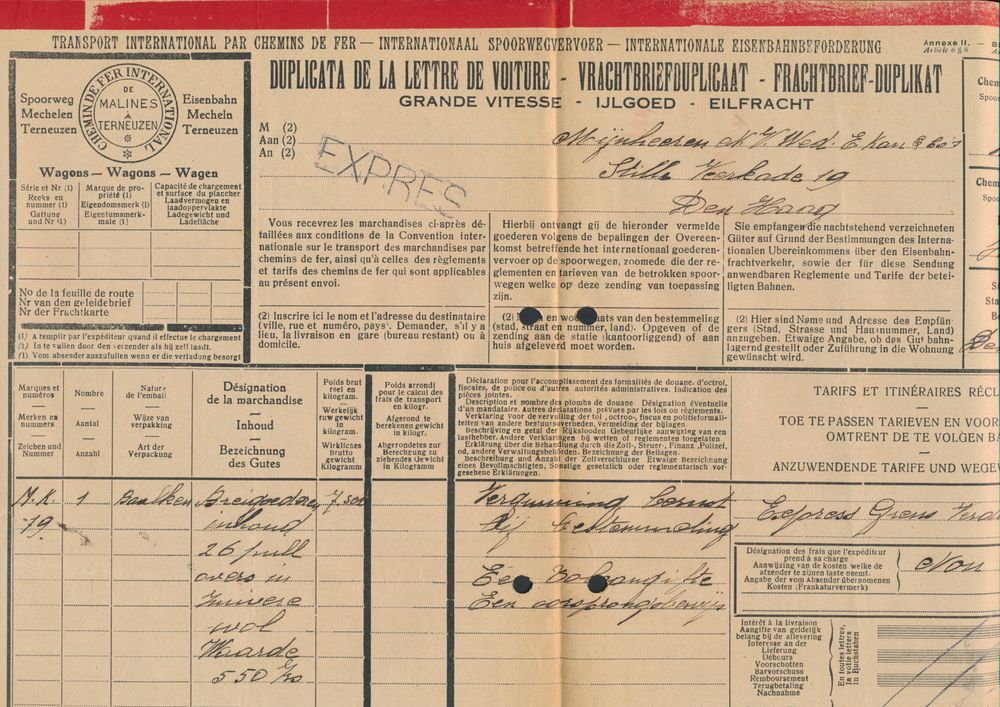 TRANSPORT INTERNATIONAL PAR CHEMINS DE FER — INTERNATIONAAL SPOORWEGVERVOER — INTERNATIONALE EISENBAHNBEFÖRDERUNG
Annexe II. —
Article 6 § 6
DUPLICATA DE LA LETTRE DE VOITURE - VRACHTBRIEFDUPLICAAT - FRACHTBRIEF-DUPLIKAT
GRANDE VITESSE - IJLGOED - EILFRACHT
CHEMIN DE FER INTERNATIONAL
DE
MALINES
À
TERNEUZEN
Spoorweg
Mechelen
Terneuzen
Eisenbahn
Mecheln
Terneuzen
M (2)
Aan (2)
An (2)
EXPRES
Mijnheeren N.V. Wed. E. Kan & Co
Stille Veerkade 19
Den Haag
Wagons — Wagons — Wagen
Série et Nr (1)
Reeks en
nummer (1)
Gattung
und Nr (1)
Marque de pro-
priété (1)
Eigendomsmerk (1)
Eigentumsmerk-
male (1)
Capacité de chargement
et surface du plancher
Laadvermogen en
laadoppervlakte
Ladegewicht und
Ladefläche
No de la feuille de route
Nr van den geleidebrief
Nr der Frachtkarte
(1) A remplir par l'expéditeur quand il effectue le chargement
(1) In te vullen door den verzender als hij zelf laadt.
(1) Vom Absender auszufullen wenn er die verladung besorgt
Vous recevrez les marchandises ci-après dé-
taillées aux conditions de la Convention inter-
nationale sur le transport des marchandises par
chemins de fer, ainsi qu'à celles des règlements
et tarifs des chemins de fer qui sont applicables
au présent envoi.
Hierbij ontvangt gij de hieronder vermelde
goederen volgens de bepalingen der Overeen-
komst betreffende het internationaal goederen-
vervoer op de spoorwegen, zoomede die der re-
glementen en tarieven van de betrokken spoor-
wegen welke op deze zending van toepassing
zijn.
Sie empfangen die nachstehend verzeichneten
Güter auf Grund der Bestimmungen des Interna-
tionalen Uebereinkommens über den Eisenbahn-
frachtverkehr, sowie der für diese Sendung
anwendbaren Reglemente und Tarife der betei-
ligten Bahnen.
(2) Inscrire ici le nom et l'adresse du destinataire
(ville, rue et numéro, pays). Demander, s'il y a
lieu, la livraison en gare (bureau restant) ou à
domicile.
(2) en van den bestemmeling
(stad, straat en nummer, land). Opgeven of de
zending aan de statie (kantoorliggend) of aan
huis afgeleverd moet worden.
(2) Hier sind Name und Adresse des Empfän-
gers (Stad, Strasse und Hausnummer, Land)
anzugeben. Etwaige Angabe, ob das Gut bahn-
lagernd gestellt oder Zuführung in die Wohnung
gewünscht wird.
Marques et
numéros
Merken en
nummers
Zeichen und
Nummer
Nombre
Aantal
Anzahl
Nature
de l'emball
Wijze van
verpakking
Art der
Verpackung
Désignation
de la marchandise
Inhoud
Bezeichnung
des Gutes
Poids brut
reel en
kilogram.
Werkelijk
ruw gewicht
in kilogram.
Wirkliches
Brutto
gewicht
Kilogramm
Poids arrondi
pour le calcul des
frais de transport
en kilogr.
Afgerond te
berekenen gewicht
in kilogr.
Abgerondetes zur
Berechnung zu
ziehendes Gewicht
in Kilogramm
Déclaration pour l'accomplissement des formalités de douane, d'octroi,
fiscales, de police ou d'autres autorités administratives. Indication des
pièces jointes.
Description et nombre des plombs de douane. Désignation éventuelle
d'un mandataire. Autres déclarations prévues par les lois ou règlements.
Verklaring voor de vervulling der tol, octroo, fiscus en politieformali-
teiten van andere bestuursoverheden. Vermelding der bijlagen.
Beschrijving en getal der Rijkslooden Gebeurlijke aanwijzing van een
lasthebber. Andere Verklaringen bij wetten of reglementen toegelaten
Erklärung über die Behandlung durch die Zoll-, Steuer-, Finanz-, Polizei,
od. andere Verwaltungsbehörden. Bezeichnung der Beilagen.
Beschreibung und Anzahl der Zollverschlusse Etwaige Bezeichnung
eines Bevollmächtigten, Sonstige gesetzlich oder reglementarisch vor-
gesehene Erklärungen.
TARIFS ET ITINÉRAIRES
TOE TE PASSEN TARIEVEN EN
OMTRENT DE TE VOLGEN
ANZUWENDENDE TARIFE UND
M.K. 1 Baalken Breigoederen 7.500
79 inhoud
26 pull
overs in
zuivere
wol
Waarde
550
Vergunning
bij bestemmeling
Een
Een oorsprongbewijs
Express Grens
Désignation des frais que l'expéditeur
prend à sa charge
Aanwijzing van de kosten welke de
afzender te zijnen laste neemt.
Angabe der vom Absender übernomenen
Kosten (Frankaturvermerk)
Non
Intérêt à la livraison
Aangifte van geldelijk
belang bij de aflevering
Interesse an der
Lieferung
Débours
Voorschotten
Barvorschuss
Remboursement
Terugbetaling
Nachnahme
En toutes lettres,
In volle letters
In Buchstaben